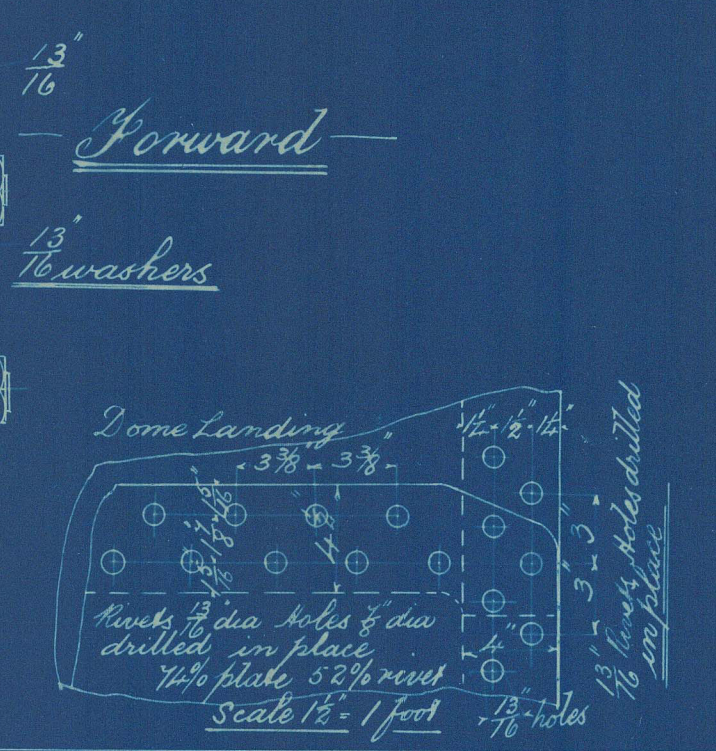 13/16"
Forward
13/16" washers
Dome Landing
3 3/8" 3 3/8"
1 1/4" 1 1/2" 1 1/4"
4 1/2"
Rivets 13/16" dia Holes 7/8" dia
drilled in place
74% plate 52% rivet
Scale 1 1/2" = 1 foot
4"
13/16" holes
3" 3"
13/16" Rivets, Holes drilled
in place